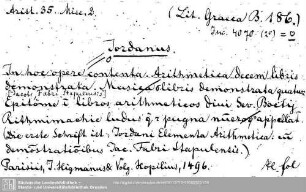 Arist. 35. Misc. 2.
(Lit. Graeca B. 186,)
Inv. 4070 (2°) = 0
Jordanus.
In hoc opere contenta. Arithmetica decem libris
demonstrata. Musica libris demonstrata quatuor
(Jacobi Fabri Stapulens.)
Epitome i libros arithmeticos divi Sev. Boetij
Rithmimachie ludus q; r pugna nūeror̄ appellat.
(Die erste Schrift ist, Jordani Elementa Arithmetica. cū
demōstratiōibus Jac. Fabri Stapulensis.)
Parisiis, J. Higmanus & Volg. Hopilius, 1496. kl fol